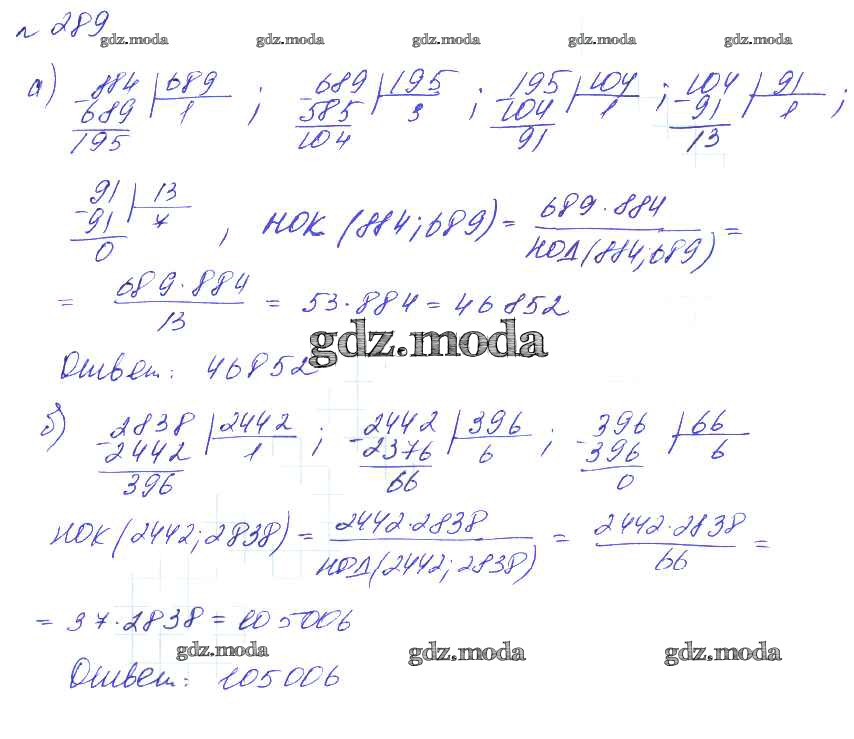 № 289
gdz.moda gdz.moda gdz.moda gdz.moda
а) 884 | 689 ; 689 | 195 ; 195 | 104 ; 104 | 91 ;
- 689 | 1 - 585 | 3 - 104 | 1 - 91 | 1
195 104 91 13
91 | 13
- 91 | 7 , НОК (884; 689) = 689·884 / НОД(884; 689) =
0
= 689·884 / 13 = 53·884 = 46852
gdz.moda
Ответ: 46852
б) 2838 | 2442 ; 2442 | 396 ; 396 | 66
- 2442 | 1 - 2376 | 6 - 396 | 6
396 66 0
НОК (2442; 2838) = 2442·2838 / НОД(2442; 2838) = 2442·2838 / 66 =
= 37·2838 = 105006
gdz.moda gdz.moda gdz.moda
Ответ: 105006